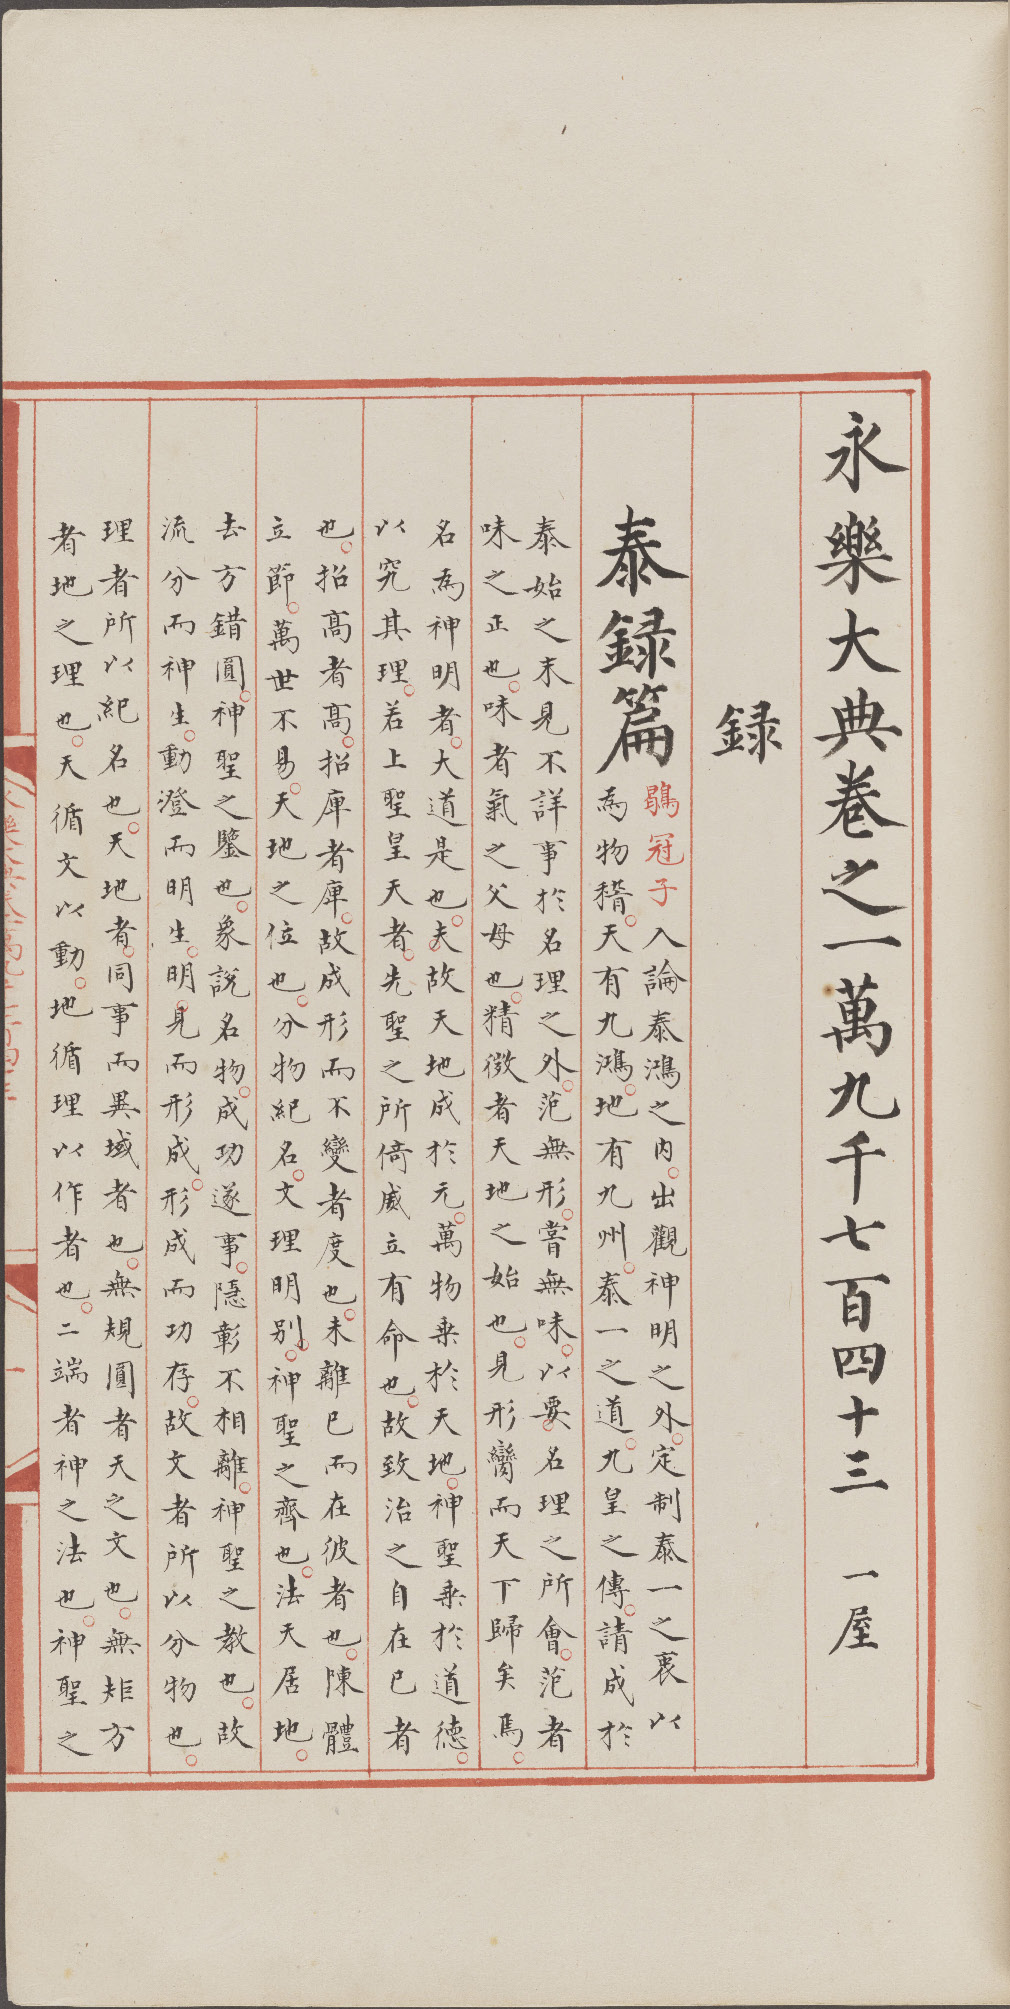 永樂大典卷之一萬九千七百四十三　一屋
録
泰録篇
鶡冠子入論泰鴻之內。出觀神明之外。定制泰一之衷以
為物稽。天有九鴻。地有九州。泰一之道。九皇之傳。請成於
泰始之末見不詳事於名理之外。范無形。嘗無味。以要名理之所會。范者
味之正也。味者氣之父母也。精微者天地之始也。見形臠而天下歸矣焉。
名為神明者。大道是也。夫故天地成於元。萬物乗於天地。神聖乗於道德。
以究其理。若上聖皇天者。先聖之所倚威立有命也。故致治之自在已者
也。招髙者髙。招庳者庳。故成形而不變者度也。未離已而在彼者也。陳體
立節。萬世不易。天地之位也。分物紀名。文理明别。神聖之齊也。法天居地。
去方錯圓。神聖之鑒也。象說名物。成功遂事。隱彰不相離。神聖之教也。故
流分而神生。動澄而明生。明見而形成。形成而功存。故文者所以分物也。
理者所以紀名也。天地者。同事而異域者也。無規圓者天之文也。無矩方
者地之理也。天循文以動。地循理以作者也。二端者神之法也。神聖之